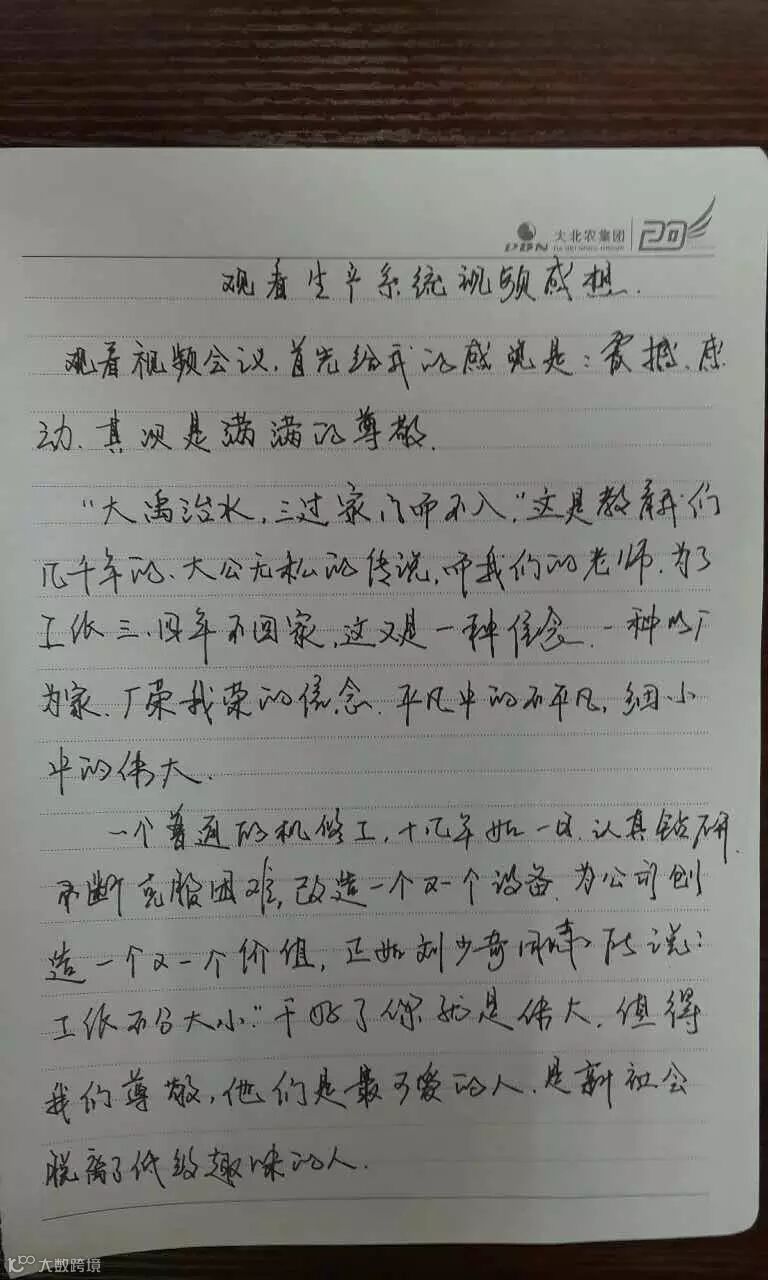 DBN 大北农集团 20
观看生产系统视频感想.
观看视频会议,首先给我的感觉是:震撼、感
动、其次是满满的尊敬.
"大禹治水,三过家门而不入,"这是教育我们
几千年的、大公无私的传说,而我们的老师.为了
工作三、四年不回家,这又是一种信念.一种以厂
为家、厂荣我荣的信念.平凡中的不平凡,细小
中的伟大.
一个普通的机修工,十几年如一日.认真钻研
不断克服困难,改造一个又一个设备.为公司创
造一个又一个价值,正如刘少奇同志所说:
工作不分大小."干好了你就是伟大.值得
我们尊敬,他们是最可爱的人.是新社会
脱离了低级趣味的人.
大数跨境